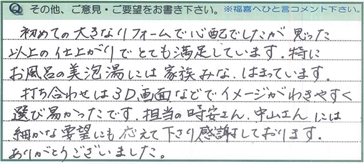 Q その他、ご意見・ご要望をお書き下さい。 ※福喜へひと言コメント下さい。
初めての大きなリフォームで心配でしたが思った
以上の仕上がりでとても満足しています。特に
お風呂の美泡湯には家族みな、はまっています。
打ち合わせは3D画面などでイメージがわきやすく
選び易かったです。担当の時安さん、中山さんには
細かな要望にも応えて下さり感謝しております。
ありがとうございました。